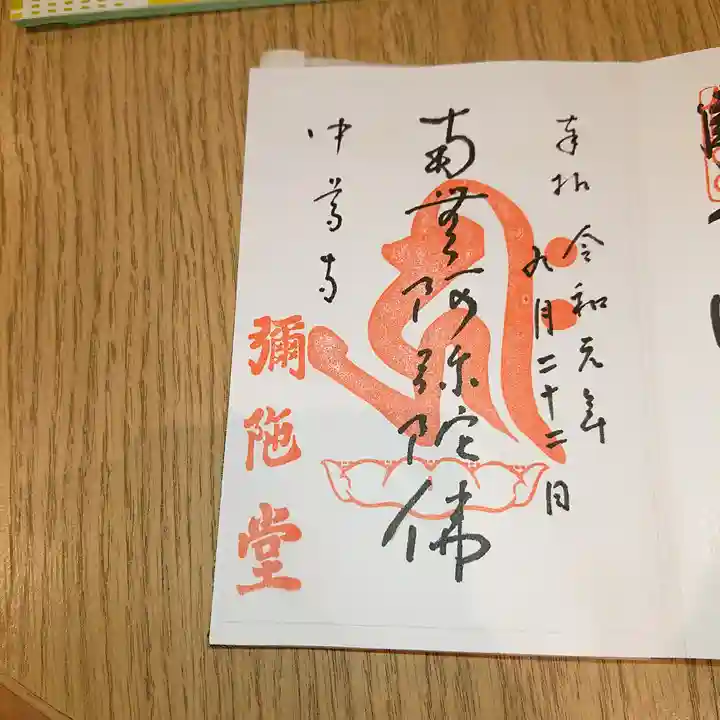 奉拝 令和元年
九月二十二日
南無阿弥陀佛
中尊寺
彌陁堂